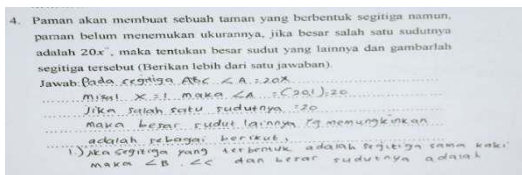 4. Paman akan membuat sebuah taman yang berbentuk segitiga namun,
paman belum menemukan ukurannya, jika besar salah satu sudutnya
adalah 20x°, maka tentukan besar sudut yang lainnya dan gambarlah
segitiga tersebut (Berikan lebih dari satu jawaban).
Jawab: Pada segitiga ABC ∠A = 20x
misal x = 1 maka ∠A = (20.1) = 20
Jika salah satu sudutnya = 20
maka besar sudut lainnya yg memungkinkan
adalah sebagai berikut,
1.) Jika segitiga yang terbentuk adalah segitiga sama kaki
maka ∠B = ∠C dan besar sudutnya adalah